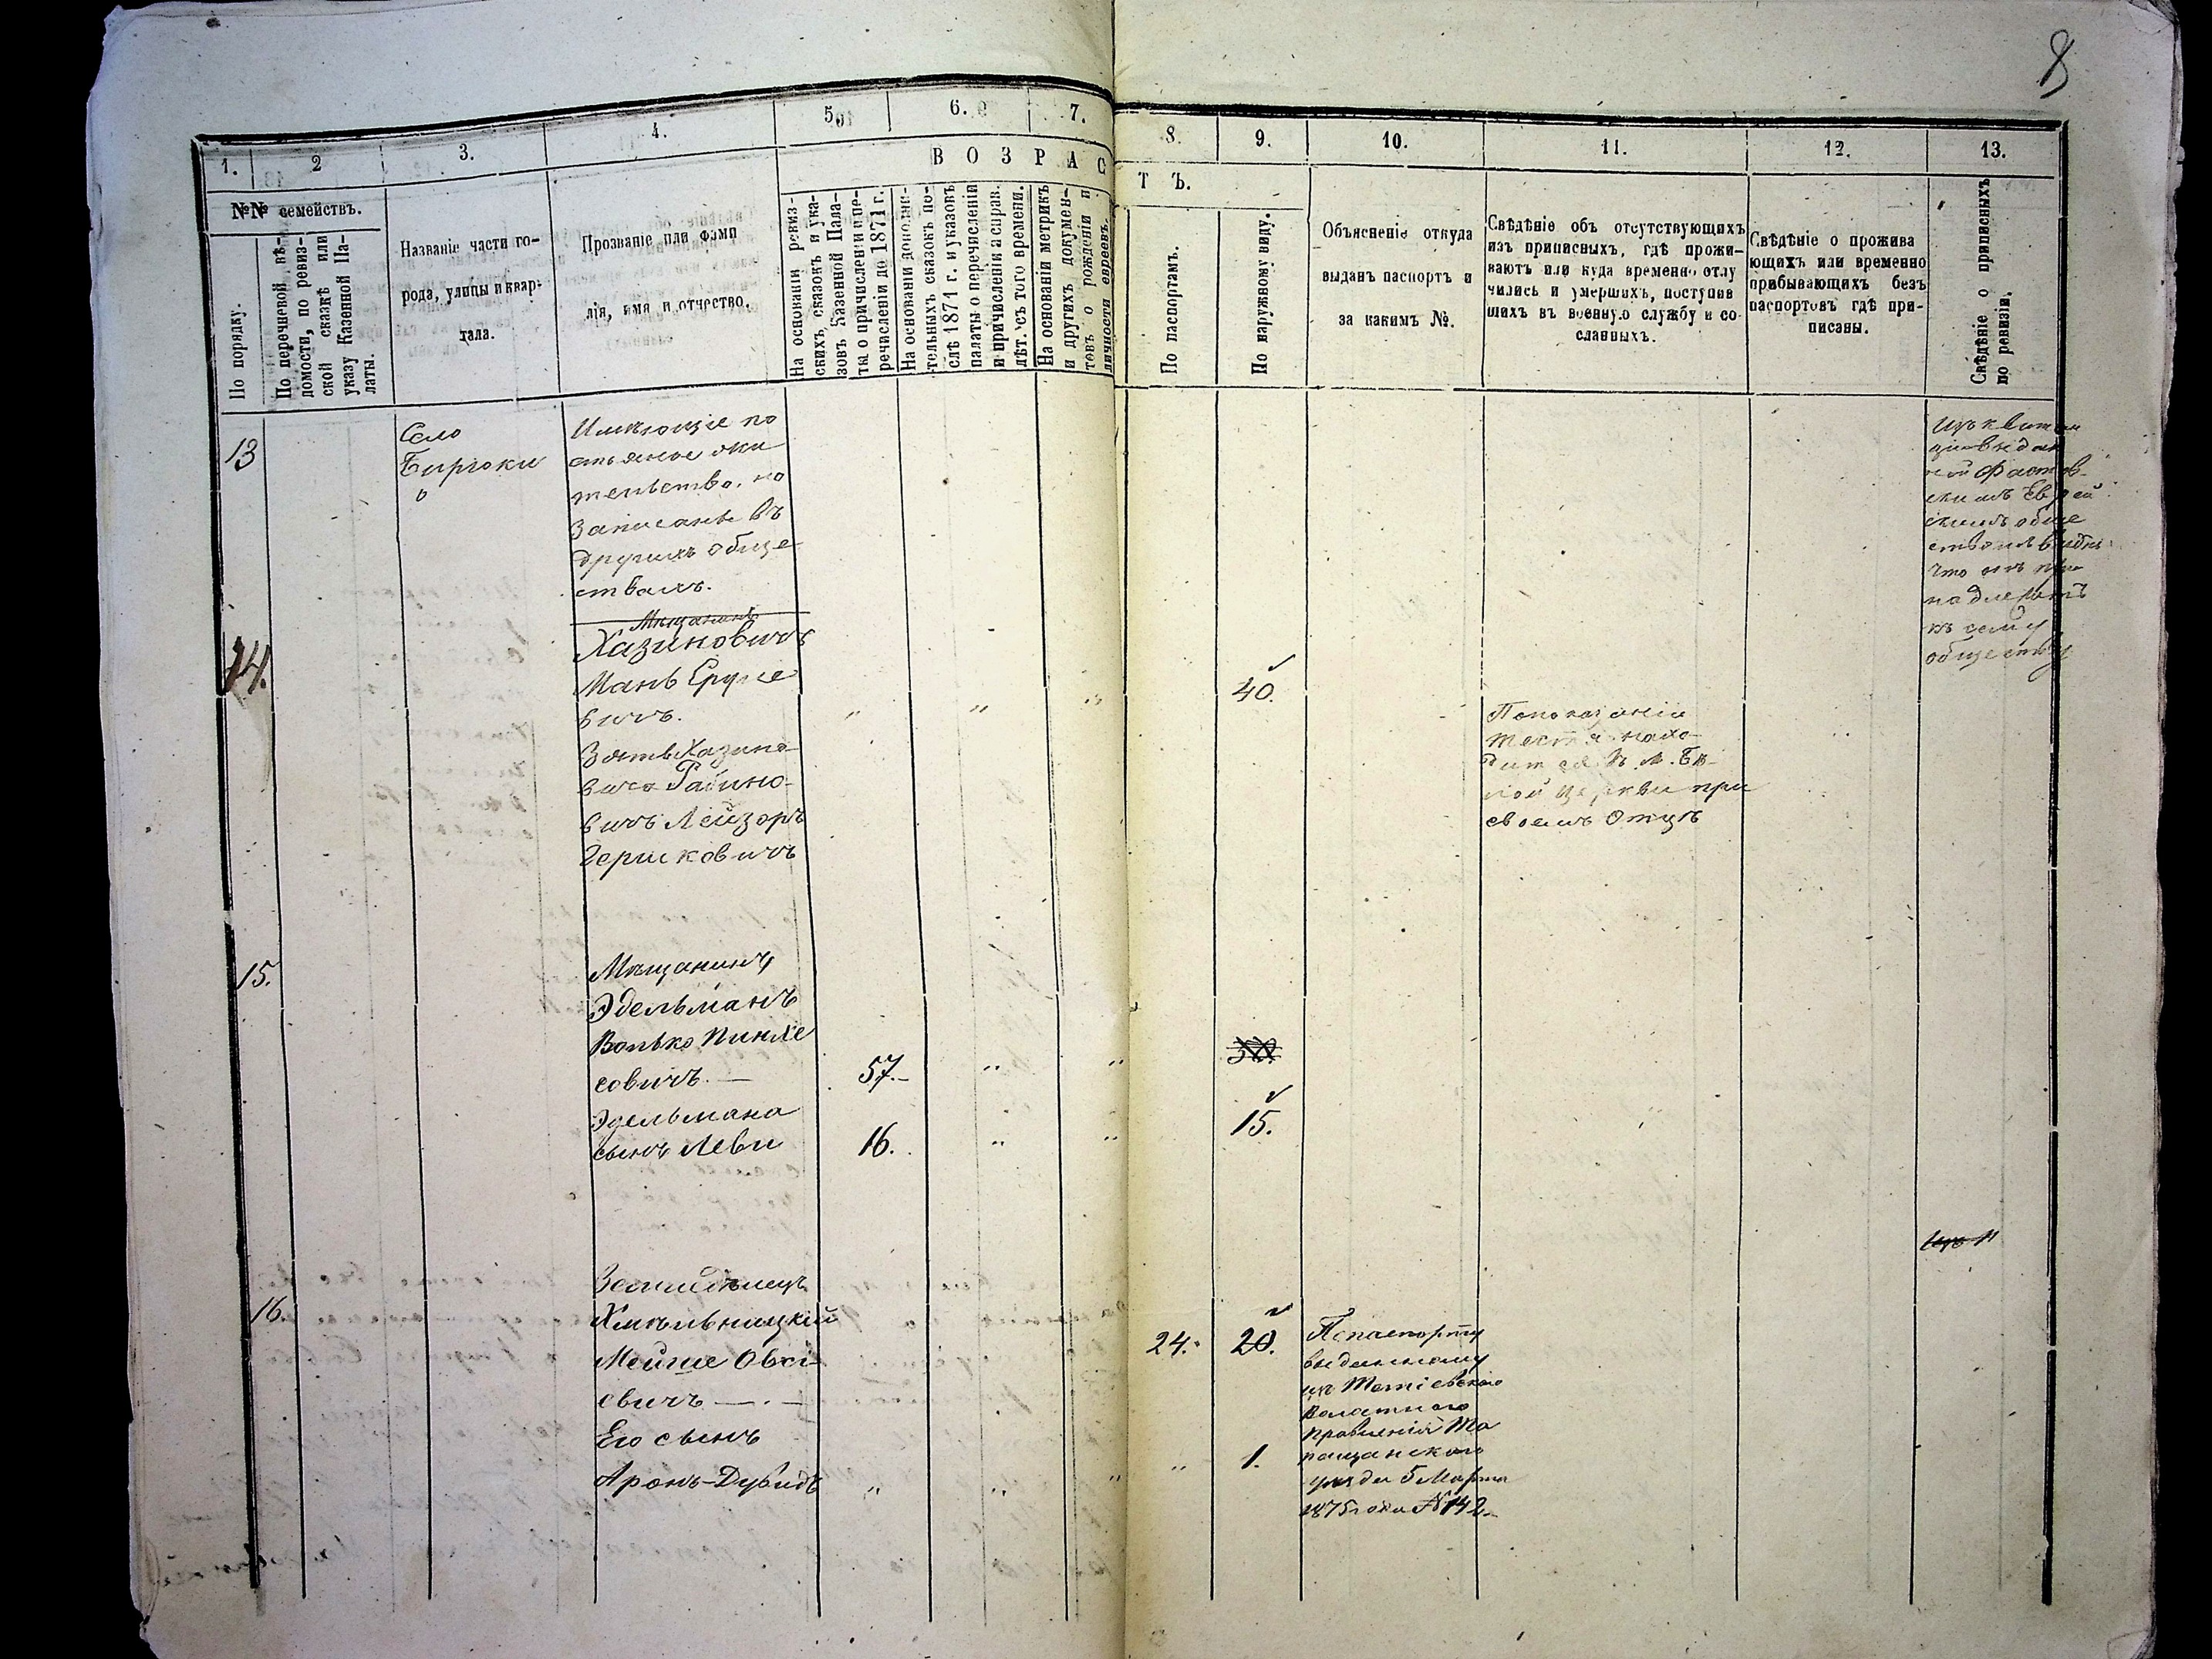 8
1.
2
3.
4.
5.
6.
7.
8.
9.
10.
11.
12.
13.
В О З Р А С
Т Ъ.
№№ семействъ.
По порядку.
По перечневой вѣ-
домости, по ревиз-
ской сказкѣ или
указу Казенной Па-
латы.
Названіе части го-
рода, улицы и квар-
тала.
Прозваніе или фами
лія, имя и отчество.
На основаніи ревиз-
скихъ сказокъ и ука-
зовъ Казенной Пала-
ты о причисленіи и пе-
речисленіи до 1871 г.
На основаніи дополни-
тельныхъ сказокъ по-
слѣ 1871 г. и указовъ
палаты о перечисленіи
и причисленіи а справ.
лѣт. съ того времени.
На основаніи метрикъ
и другихъ докумен-
товъ о рожденіи и
личности евреевъ.
По паспортамъ.
По наружному виду.
Объясненіе откуда
выданъ паспортъ и
за какимъ №.
Свѣдѣніе объ отсутствующихъ
изъ приписныхъ, гдѣ прожи-
ваютъ или куда временно отлу
чились и умершихъ, поступив
шихъ въ военную службу и со-
сланныхъ.
Свѣдѣніе о прожива
ющихъ или временно
прибывающихъ безъ
паспортовъ гдѣ при-
писаны.
Свѣдѣніе о приписныхъ
по ревизіи.
13
Село
Бирюки
Имѣющіе по
стоянное жи
тельство, но
записаны въ
другихъ обще-
ствахъ.
Мѣщанинъ
14.
Хазиновичъ
Мань Еруше
вичъ.
40.
Зять Хазино-
вича Рабино-
вичъ Лейзоръ
Гершковичъ
По показанію
тестя нахо-
дится въ м. Бѣ-
лой Церкви при
своемъ Отцѣ
Изъ квитан
ціи выдан
ной Фастов-
скимъ Еврей
скимъ обще
ствомъ видно
что онъ при
надлежитъ
къ сему
обществу
15.
Мѣщанинъ
Эдельманъ
Волько Пинхе
совичъ. —
57.-
Эдельмана
сынъ Леви
16.
15.
16.
Земледѣлецъ
Хмѣльницкій
Мойше Овсі-
евичъ — . —
24.
20.
Его сынъ
Аронъ-Дувидъ
1.
По паспорту
выданному
изъ Тетіевскаго
Волостного
Правленія Та
ращанскаго
уѣзда 5 Марта
1875 года № 142.